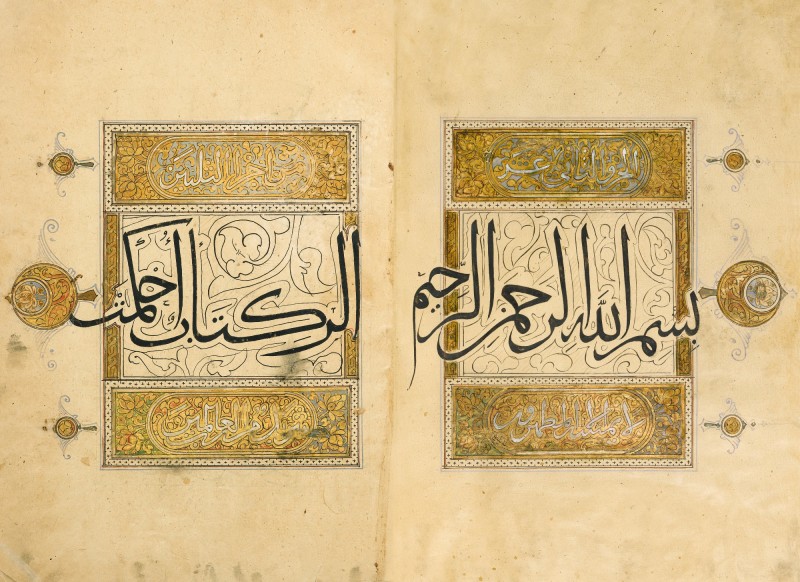 الجزو الثاني عشر
بسم الله الرحمن الرحيم
لا يمسه الا المطهرون
من اجزاء الثلثين
الر كتاب أُحكمت
تنزيل من رب العالمين